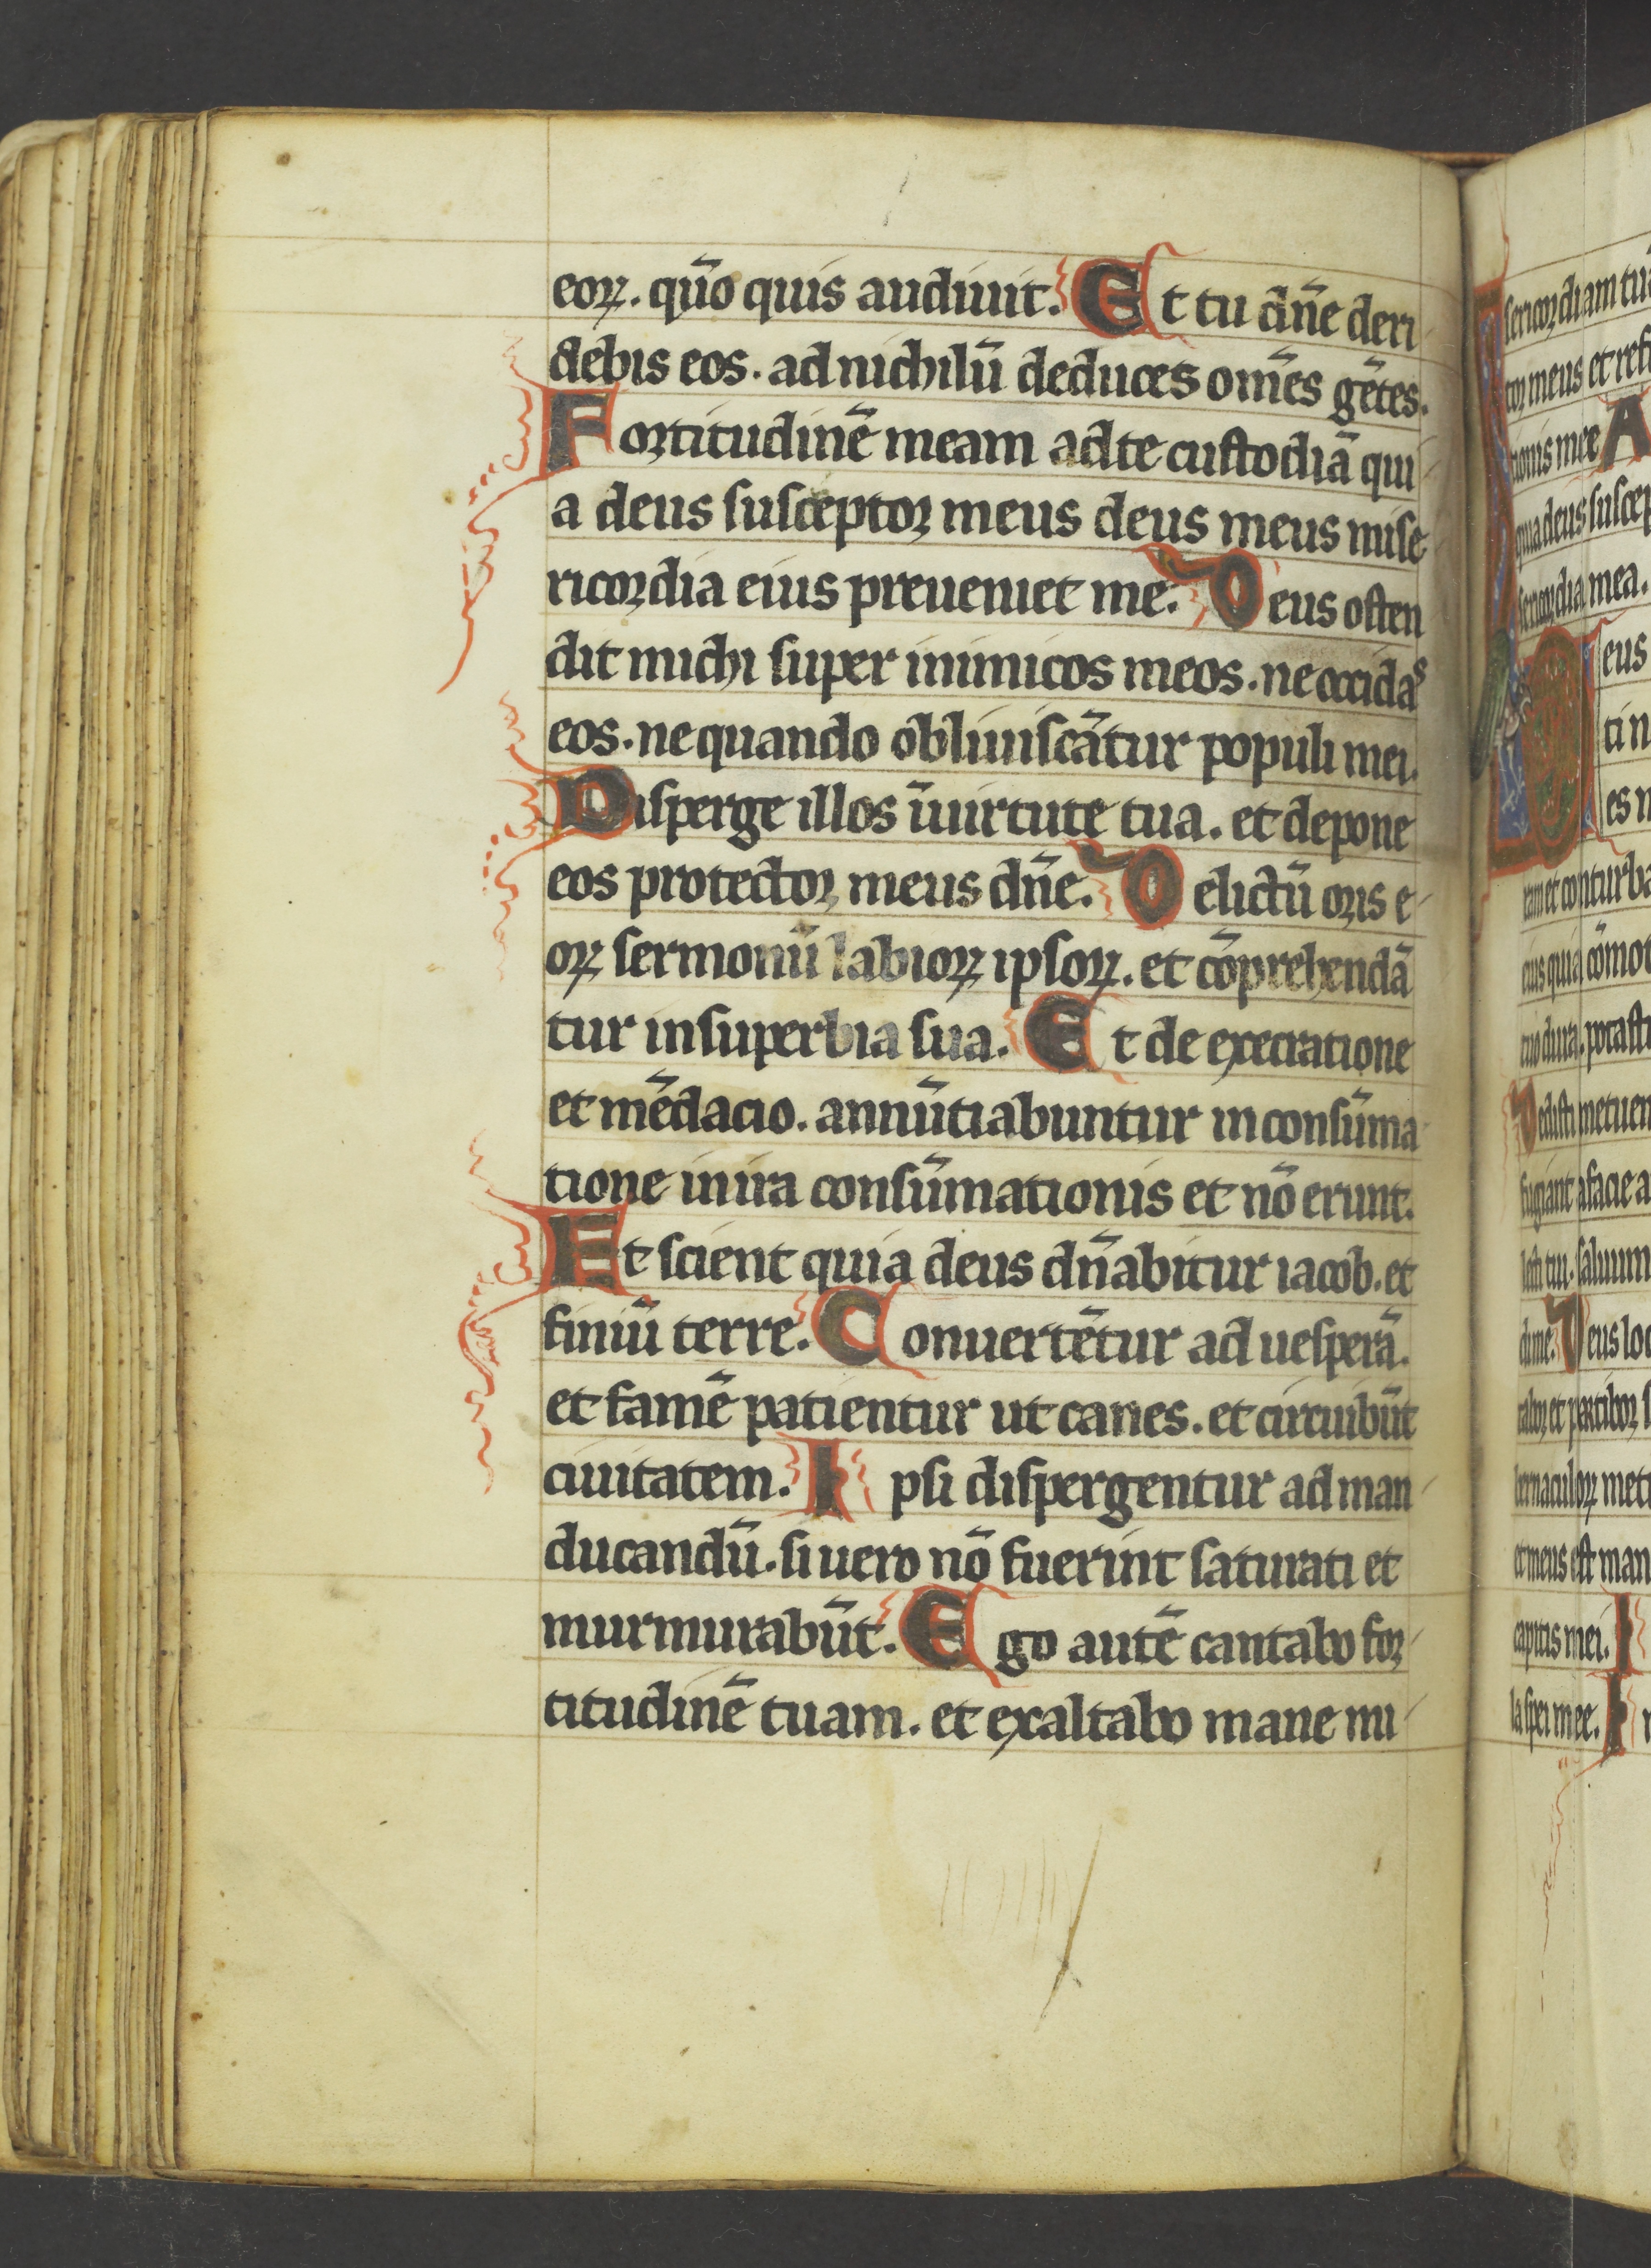 eoꝝ. qūo quis audiuit. Et tu dn̄e deri
debis eos. ad nichilū deduces om̄es gētes.
Fortitudinē meam ad te custodiā qui
a deus susceptor meus deus meus mise
ricordia eius preueniet me. Deus osten
dit michi super inimicos meos. ne occidas
eos. ne quando obliuiscātur populi mei.
Disperge illos ī uirtute tua. et depone
eos protector meus dn̄e. Delictū oris e
oꝝ sermonū labioꝝ ipsoꝝ. et cōprehendā
tur in superbia sua. Et de execratione
et mēdacio. annūtiabuntur in consūma
tione in ira consūmationis et nō erunt.
Et scient quia deus dn̄abitur iacob. et
finiū terre. Conuertētur ad uesperā.
et famē patientur ut canes. et circuibūt
ciuitatem. Ipsi dispergentur ad man
ducandū. si uero nō fuerint saturati et
murmurabūt. Ego autē cantabo for
titudinē tuam. et exaltabo mane mi
sericordiam tuā
tor meus et refu
tionis mee A
quia deus suscep
sericordia mea.
Deus
ti n
es m
ram et conturba
eius quia cōmot
tuo dura. potasti
Dedisti metuen
fugiant a facie a
lecti tui. saluum
di me. Deus loc
tabor et partibor s
bernaculoꝝ meti
et meus est man
capitis mei. I
la spei mee. I